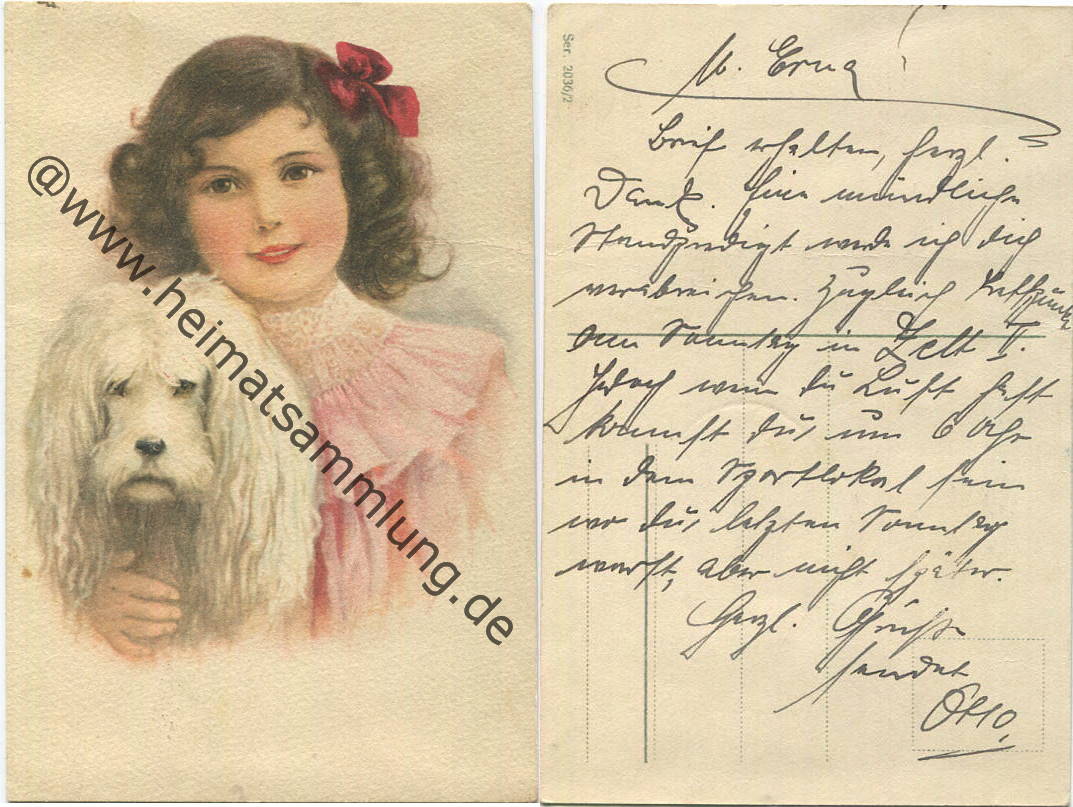 @www.heimatsammlung.de
Ser. 2030/2
M. Erna
Brief erhalten, herzl.
Dank. Eine mündliche
Standpredigt werde ich dich
verabreichen. Zugleich Treffpunkt
am Sonntag in Zelt I.
Jedoch wenn du Lust hast
kannst du um 6 Uhr
in dem Sportlokal sein
wo du letzten Sonntag
warst, aber nicht später.
Herzl. Grüße
sendet
Otto